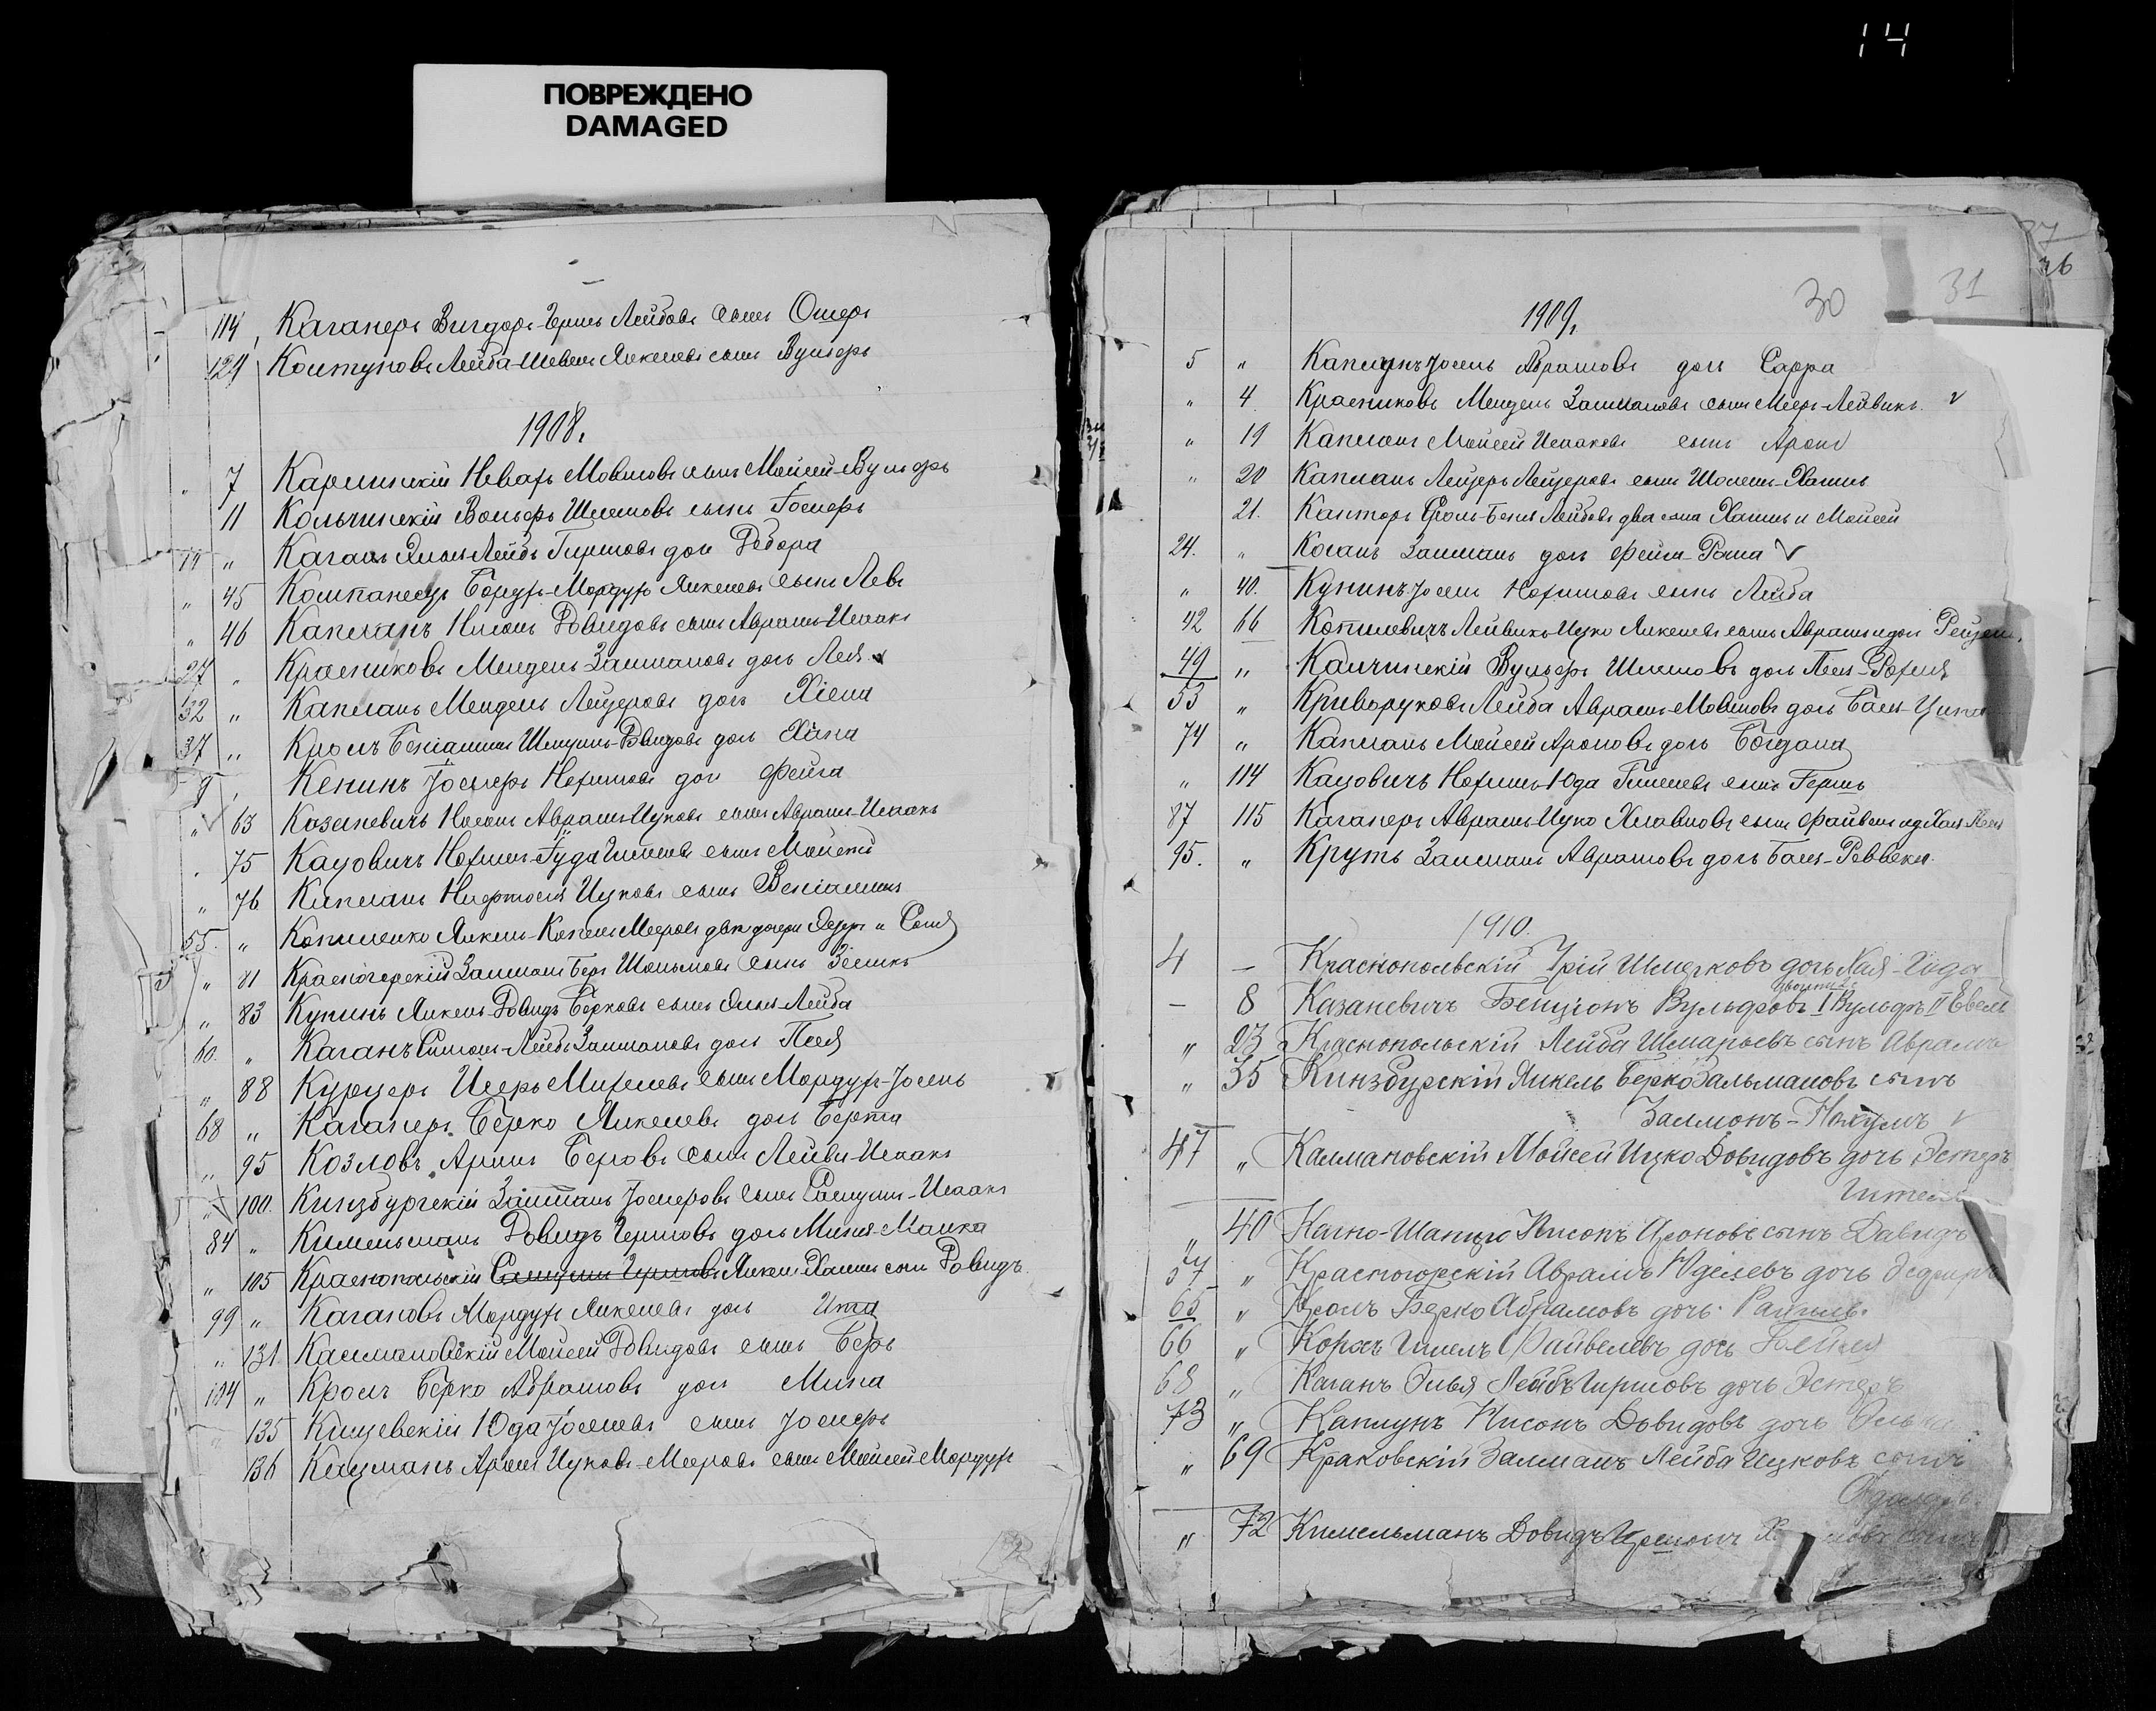 14
ПОВРЕЖДЕНО
DAMAGED
114 Каганеръ Вигдоръ-Гершъ Лейбовъ сынъ Ошеръ
129 Колтуновъ Лейба-Шевель Янкелевъ сынъ Вульфъ
1908.
„ 7 Карлинскій Невахъ Мовшовъ сынъ Мойсей-Вульфъ
11 Кольчинскій Вольфъ Шлемовъ сынъ Іосифъ
19 „ Каганъ Лейбъ Гиршовъ дочь Дебора
„ 45 Компанеецъ Борухъ-Мордухъ Янкелевъ сынъ Левъ
„ 46 Капланъ Нисонъ Довидовъ сынъ Авраамъ-Исаакъ
27 „ Красниковъ Мендель Залмановъ дочь Лея
32 „ Капланъ Мендель Лейзеровъ дочь Хіена
37 „ Кролъ Беніаминъ Шмуилъ-Довидовъ дочь Хана
Кенинъ Іосифъ Нохимовъ дочь Фейга
„ 63 Казаневичъ Нисонъ Авраамъ-Ицковъ сынъ Авраамъ-Исаакъ
75 Кацовичъ Нохимъ-Іуда сынъ Мойсей
„ 76 Капланъ Ицковъ сынъ Веніаминъ
55. „ Копиленко Янкель-Копель Мееровъ двѣ дочери и Соня
„ 81 Красногорскій Залманъ Беръ сынъ
„ 83 Кунинъ Янкель-Довидъ Берковъ сынъ Лейба
60. „ Каганъ Симонъ-Лейбъ Залмановъ дочь Песя
„ 88 Курцеръ Исеръ Михелевъ сынъ Мордухъ-Іосель
68 „ Каганеръ Берко Янкелевъ дочь Берта
„ 95 Козловъ Аронъ Беровъ сынъ Лейви-Исаакъ
„ 100. Кинзбургскій Залманъ Іосифовъ сынъ Самуилъ-Исаакъ
84 „ Кимельманъ Довидъ Гершовъ дочь Миня-Малка
„ 105 Краснопольскій Самуилъ Гершовъ Янкель Хаимъ сынъ Довидъ
99 „ Кагановъ Мордухъ Янкелевъ дочь Ита
„ 131. Калмановскій Мойсей Довидовъ сынъ Беръ
124 „ Кролъ Берко Абрамовъ дочь Мина
135 Кищевскій Юда Іоселевъ сынъ Іосифъ
136 Кацманъ Аронъ Ицковъ-Мееровъ сынъ Мойсей-Мордухъ
30
31
26
1909.
5 „ Капланъ Іосель Абрамовъ дочь Сарра
„ 4. Красниковъ Мендель Залмановъ сынъ Мееръ-Лейвикъ.
„ 19 Капланъ Мойсей Исааковъ сынъ Аронъ
„ 20 Капланъ Лейзеръ Лейзеровъ сынъ Шолемъ-Хаимъ
21. Канторъ Лейбовъ два сына Хаимъ и Мойсей
24. „ Коганъ Залманъ дочь Фейга-Рония
„ 40. Кунинъ Іосель Нохимовъ сынъ Лейба
42 66 Копилевичъ Лейвикъ-Ицко Янкелевъ сынъ Авраамъ и дочь
49 „ Калчинскій Вульфъ Шлемовъ дочь Песя-Рохля
53 „ Криворуковъ Лейба Авраамъ-Мовшовъ дочь Бася-Ципа
74 „ Капланъ Мойсей Ароновъ дочь Богдана
„ 114 Кацовичъ Нохимъ-Юда сынъ Гершъ
87 115 Каганеръ Авраамъ-Ицко Хлавновъ сынъ Файвель и д Хая
95. „ Крутъ Залманъ Авраамовъ дочь Бася-Реввека.
1910.
4 — Краснопольскій Шмерковъ дочь Хая-Года
двойни
— 8 Казаневичъ Бенціонъ Вульфовъ I Вульфъ II Евель
„ 23 Краснопольскій Лейба Шмарьевъ сынъ Авраамъ
„ 35 Кинзбурскій Янкель Берко Зальмановъ сынъ
Залмонъ-Нохумъ
47 „ Калмановскій Мойсей Ицко Довидовъ дочь Эстеръ
„ 40 Кагно-Шапиро Нисонъ Ароновъ сынъ Давидъ
57 „ Красногорскій Авраамъ Юделевъ дочь
65 „ Кролъ Берко Абрамовъ дочь Рахиль.
66 „ Коржъ Файвелевъ дочь
68 „ Каганъ Элья Лейбъ Гиршовъ дочь Эстеръ
73 „ Каплунъ Нисонъ Довидовъ дочь
„ 69 Краковскій Залманъ Лейба Ицковъ сынъ
„ 72 Кимельманъ Довидъ